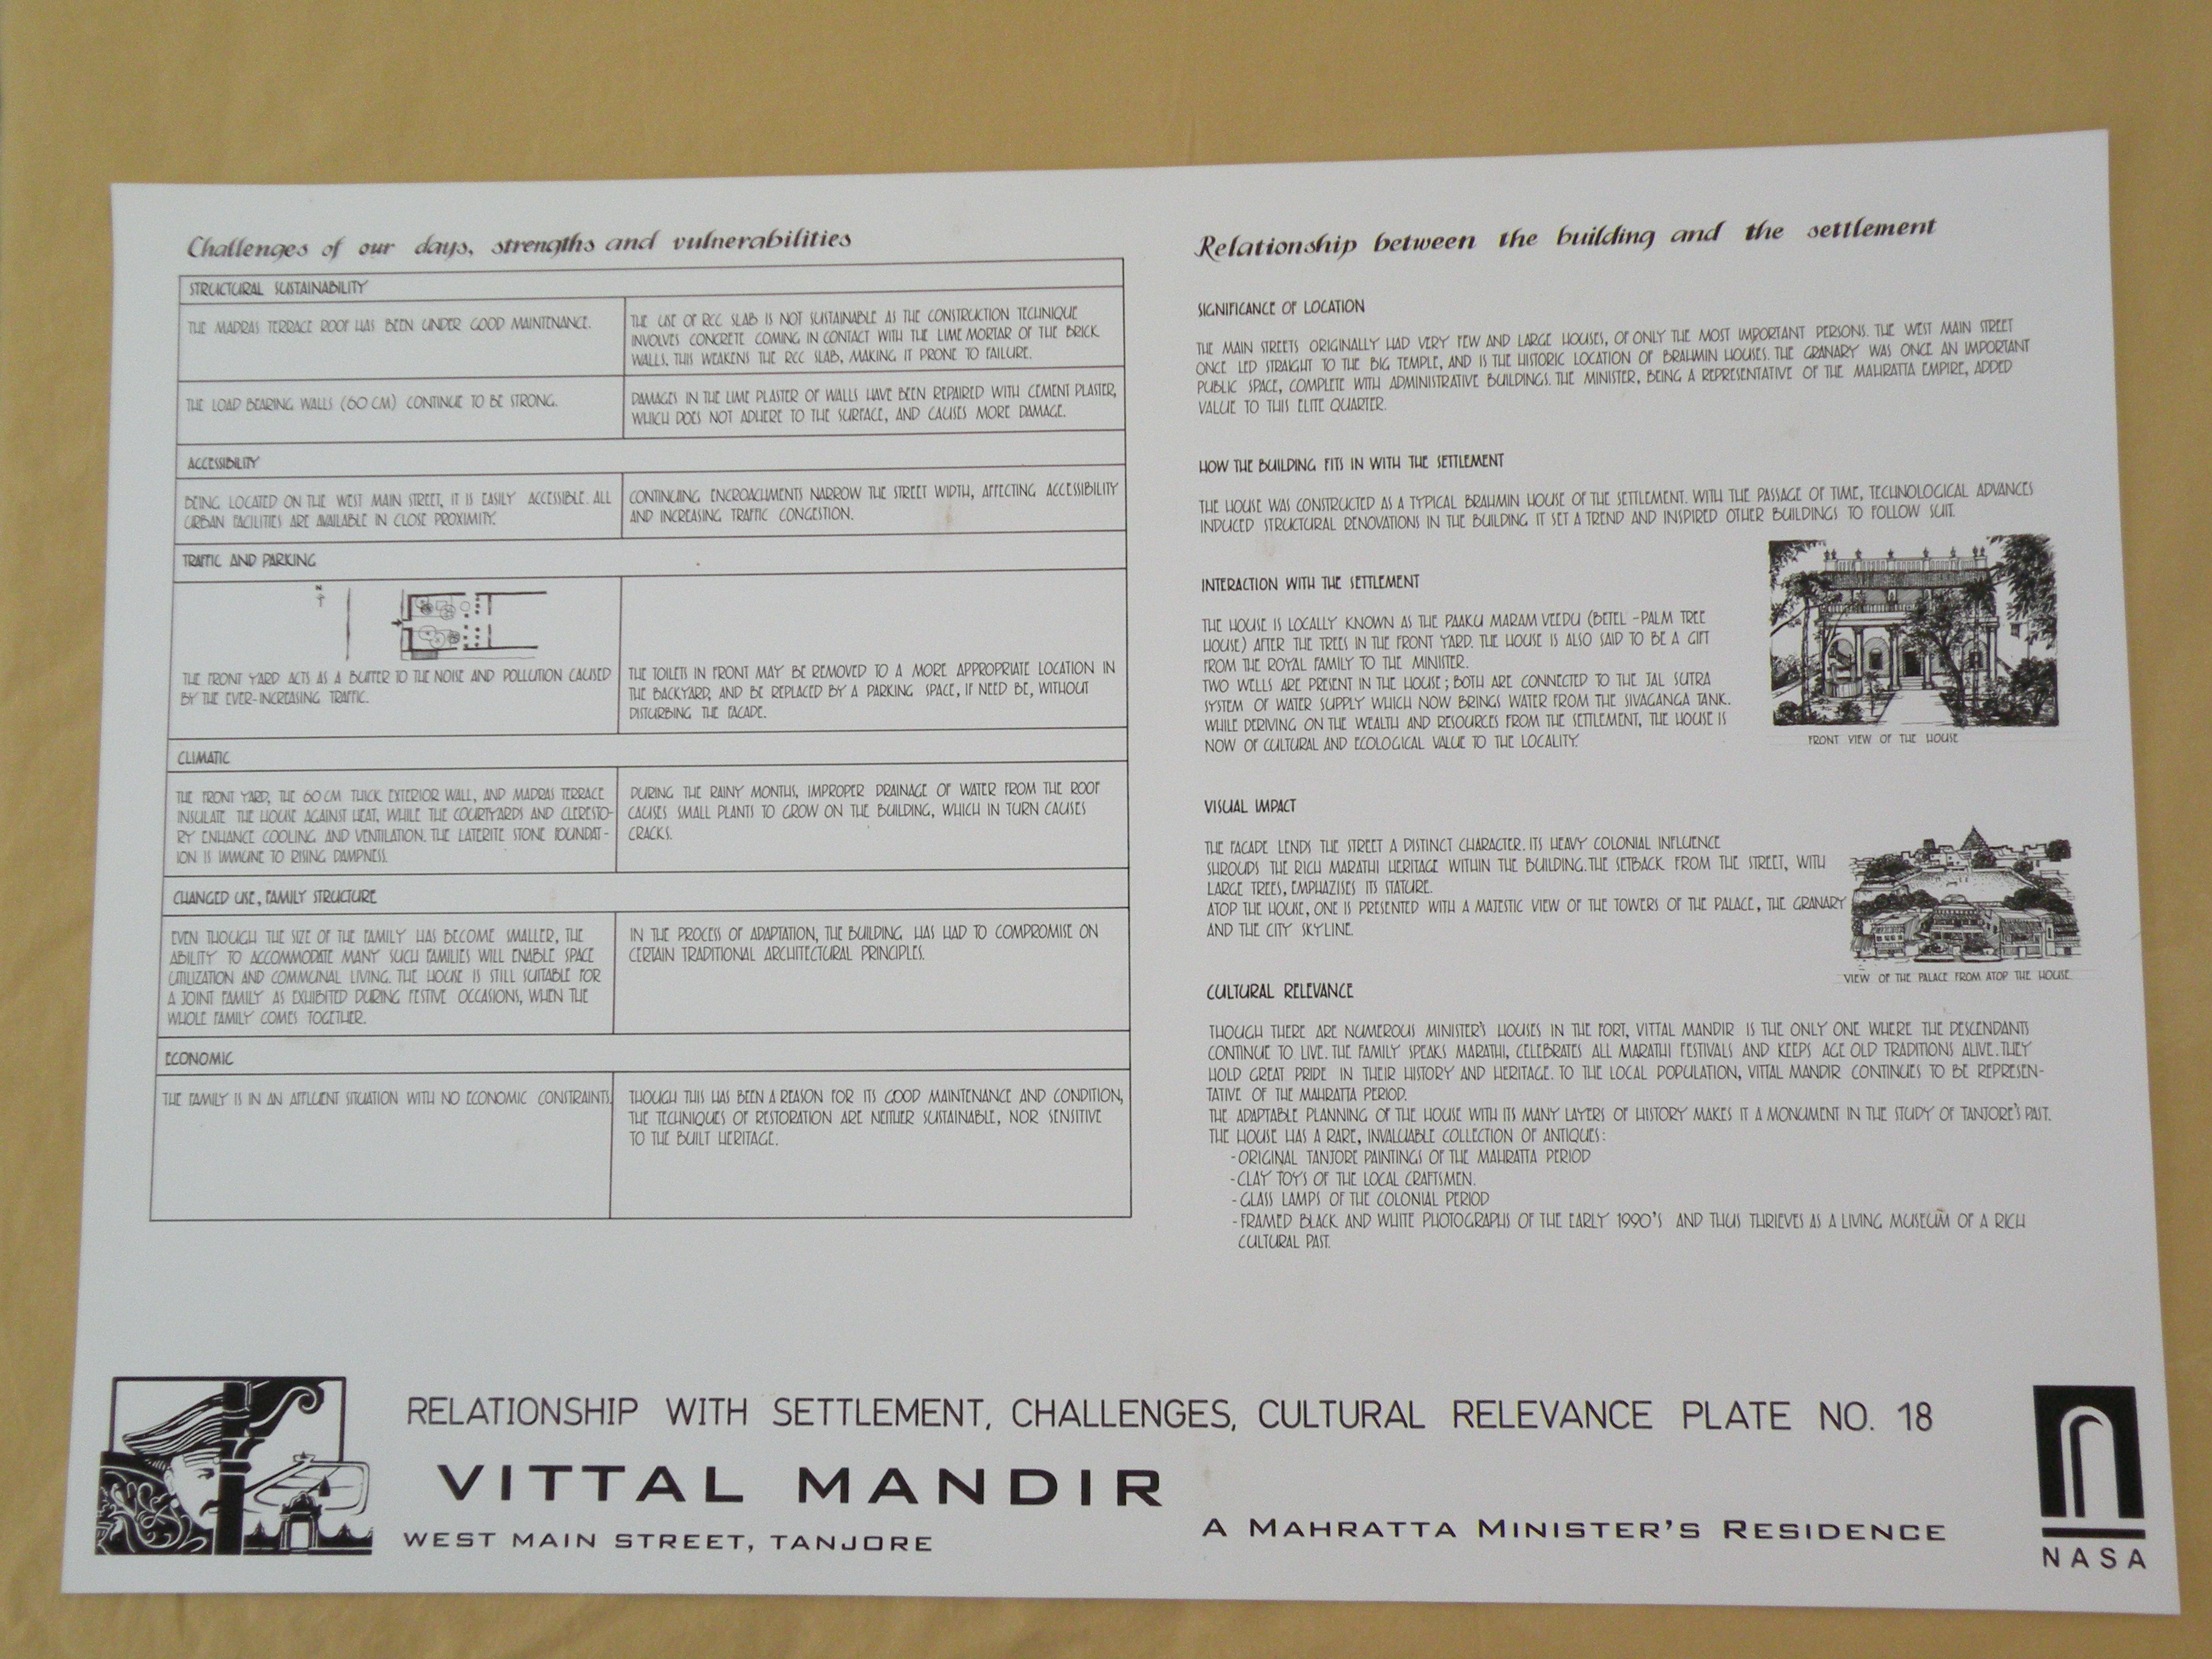 Challenges of our days, strengths and vulnerabilities
STRUCTURAL SUSTAINABILITY
THE MADRAS TERRACE ROOF HAS BEEN UNDER GOOD MAINTENANCE.
THE USE OF RCC SLAB IS NOT SUSTAINABLE AS THE CONSTRUCTION TECHNIQUE
INVOLVES CONCRETE COMING IN CONTACT WITH THE LIME MORTAR OF THE BRICK
WALLS. THIS WEAKENS THE RCC SLAB, MAKING IT PRONE TO FAILURE.
THE LOAD BEARING WALLS (60 CM) CONTINUE TO BE STRONG.
DAMAGES IN THE LIME PLASTER OF WALLS HAVE BEEN REPAIRED WITH CEMENT PLASTER,
WHICH DOES NOT ADHERE TO THE SURFACE, AND CAUSES MORE DAMAGE.
ACCESSIBILITY
BEING LOCATED ON THE WEST MAIN STREET, IT IS EASILY ACCESSIBLE. ALL
URBAN FACILITIES ARE AVAILABLE IN CLOSE PROXIMITY.
CONTINUING ENCROACHMENTS NARROW THE STREET WIDTH, AFFECTING ACCESSIBILITY
AND INCREASING TRAFFIC CONGESTION.
TRAFFIC AND PARKING
N
THE FRONT YARD ACTS AS A BUFFER TO THE NOISE AND POLLUTION CAUSED
BY THE EVER-INCREASING TRAFFIC.
THE TOILETS IN FRONT MAY BE REMOVED TO A MORE APPROPRIATE LOCATION IN
THE BACKYARD, AND BE REPLACED BY A PARKING SPACE, IF NEED BE, WITHOUT
DISTURBING THE FACADE.
CLIMATIC
THE FRONT YARD, THE 60 CM THICK EXTERIOR WALL, AND MADRAS TERRACE
INSULATE THE HOUSE AGAINST HEAT, WHILE THE COURTYARDS AND CLERESTO-
RY ENHANCE COOLING AND VENTILATION. THE LATERITE STONE FOUNDAT-
ION IS IMMUNE TO RISING DAMPNESS.
DURING THE RAINY MONTHS, IMPROPER DRAINAGE OF WATER FROM THE ROOF
CAUSES SMALL PLANTS TO GROW ON THE BUILDING, WHICH IN TURN CAUSES
CRACKS.
CHANGED USE, FAMILY STRUCTURE
EVEN THOUGH THE SIZE OF THE FAMILY HAS BECOME SMALLER, THE
ABILITY TO ACCOMMODATE MANY SUCH FAMILIES WILL ENABLE SPACE
UTILIZATION AND COMMUNAL LIVING. THE HOUSE IS STILL SUITABLE FOR
A JOINT FAMILY AS EXHIBITED DURING FESTIVE OCCASIONS, WHEN THE
WHOLE FAMILY COMES TOGETHER.
IN THE PROCESS OF ADAPTATION, THE BUILDING HAS HAD TO COMPROMISE ON
CERTAIN TRADITIONAL ARCHITECTURAL PRINCIPLES.
ECONOMIC
THE FAMILY IS IN AN AFFLUENT SITUATION WITH NO ECONOMIC CONSTRAINTS.
THOUGH THIS HAS BEEN A REASON FOR ITS GOOD MAINTENANCE AND CONDITION,
THE TECHNIQUES OF RESTORATION ARE NEITHER SUSTAINABLE, NOR SENSITIVE
TO THE BUILT HERITAGE.
Relationship between the building and the settlement
SIGNIFICANCE OF LOCATION
THE MAIN STREETS ORIGINALLY HAD VERY FEW AND LARGE HOUSES, OF ONLY THE MOST IMPORTANT PERSONS. THE WEST MAIN STREET
ONCE LED STRAIGHT TO THE BIG TEMPLE, AND IS THE HISTORIC LOCATION OF BRAHMIN HOUSES. THE GRANARY WAS ONCE AN IMPORTANT
PUBLIC SPACE, COMPLETE WITH ADMINISTRATIVE BUILDINGS. THE MINISTER, BEING A REPRESENTATIVE OF THE MAHRATTA EMPIRE, ADDED
VALUE TO THIS ELITE QUARTER.
HOW THE BUILDING FITS IN WITH THE SETTLEMENT
THE HOUSE WAS CONSTRUCTED AS A TYPICAL BRAHMIN HOUSE OF THE SETTLEMENT. WITH THE PASSAGE OF TIME, TECHNOLOGICAL ADVANCES
INDUCED STRUCTURAL RENOVATIONS IN THE BUILDING IT SET A TREND AND INSPIRED OTHER BUILDINGS TO FOLLOW SUIT.
INTERACTION WITH THE SETTLEMENT
THE HOUSE IS LOCALLY KNOWN AS THE PAAKU MARAM VEEDU (BETEL-PALM TREE
HOUSE) AFTER THE TREES IN THE FRONT YARD. THE HOUSE IS ALSO SAID TO BE A GIFT
FROM THE ROYAL FAMILY TO THE MINISTER.
TWO WELLS ARE PRESENT IN THE HOUSE; BOTH ARE CONNECTED TO THE JAL SUTRA
SYSTEM OF WATER SUPPLY WHICH NOW BRINGS WATER FROM THE SIVAGANGA TANK.
WHILE DERIVING ON THE WEALTH AND RESOURCES FROM THE SETTLEMENT, THE HOUSE IS
NOW OF CULTURAL AND ECOLOGICAL VALUE TO THE LOCALITY.
FRONT VIEW OF THE HOUSE
VISUAL IMPACT
THE FACADE LENDS THE STREET A DISTINCT CHARACTER. ITS HEAVY COLONIAL INFLUENCE
SHROUDS THE RICH MARATHI HERITAGE WITHIN THE BUILDING. THE SETBACK FROM THE STREET, WITH
LARGE TREES, EMPHAZISES ITS STATURE.
ATOP THE HOUSE, ONE IS PRESENTED WITH A MAJESTIC VIEW OF THE TOWERS OF THE PALACE, THE GRANARY
AND THE CITY SKYLINE.
VIEW OF THE PALACE FROM ATOP THE HOUSE
CULTURAL RELEVANCE
THOUGH THERE ARE NUMEROUS MINISTER'S HOUSES IN THE FORT, VITTAL MANDIR IS THE ONLY ONE WHERE THE DESCENDANTS
CONTINUE TO LIVE. THE FAMILY SPEAKS MARATHI, CELEBRATES ALL MARATHI FESTIVALS AND KEEPS AGE OLD TRADITIONS ALIVE. THEY
HOLD GREAT PRIDE IN THEIR HISTORY AND HERITAGE. TO THE LOCAL POPULATION, VITTAL MANDIR CONTINUES TO BE REPRESEN-
TATIVE OF THE MAHRATTA PERIOD.
THE ADAPTABLE PLANNING OF THE HOUSE WITH ITS MANY LAYERS OF HISTORY MAKES IT A MONUMENT IN THE STUDY OF TANJORE'S PAST.
THE HOUSE HAS A RARE, INVALUABLE COLLECTION OF ANTIQUES:
-ORIGINAL TANJORE PAINTINGS OF THE MAHRATTA PERIOD
-CLAY TOYS OF THE LOCAL CRAFTSMEN.
-GLASS LAMPS OF THE COLONIAL PERIOD
-FRAMED BLACK AND WHITE PHOTOGRAPHS OF THE EARLY 1990'S AND THUS THRIEVES AS A LIVING MUSEUM OF A RICH
CULTURAL PAST.
RELATIONSHIP WITH SETTLEMENT, CHALLENGES, CULTURAL RELEVANCE PLATE NO. 18
VITTAL MANDIR
WEST MAIN STREET, TANJORE
A MAHRATTA MINISTER'S RESIDENCE
NASA